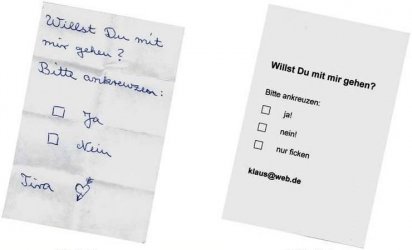 Willst Du mit
mir gehen?
Bitte ankreuzen:
Ja
Nein
Tina
Willst Du mit mir gehen?
Bitte ankreuzen:
ja!
nein!
nur ficken
klaus@web.de